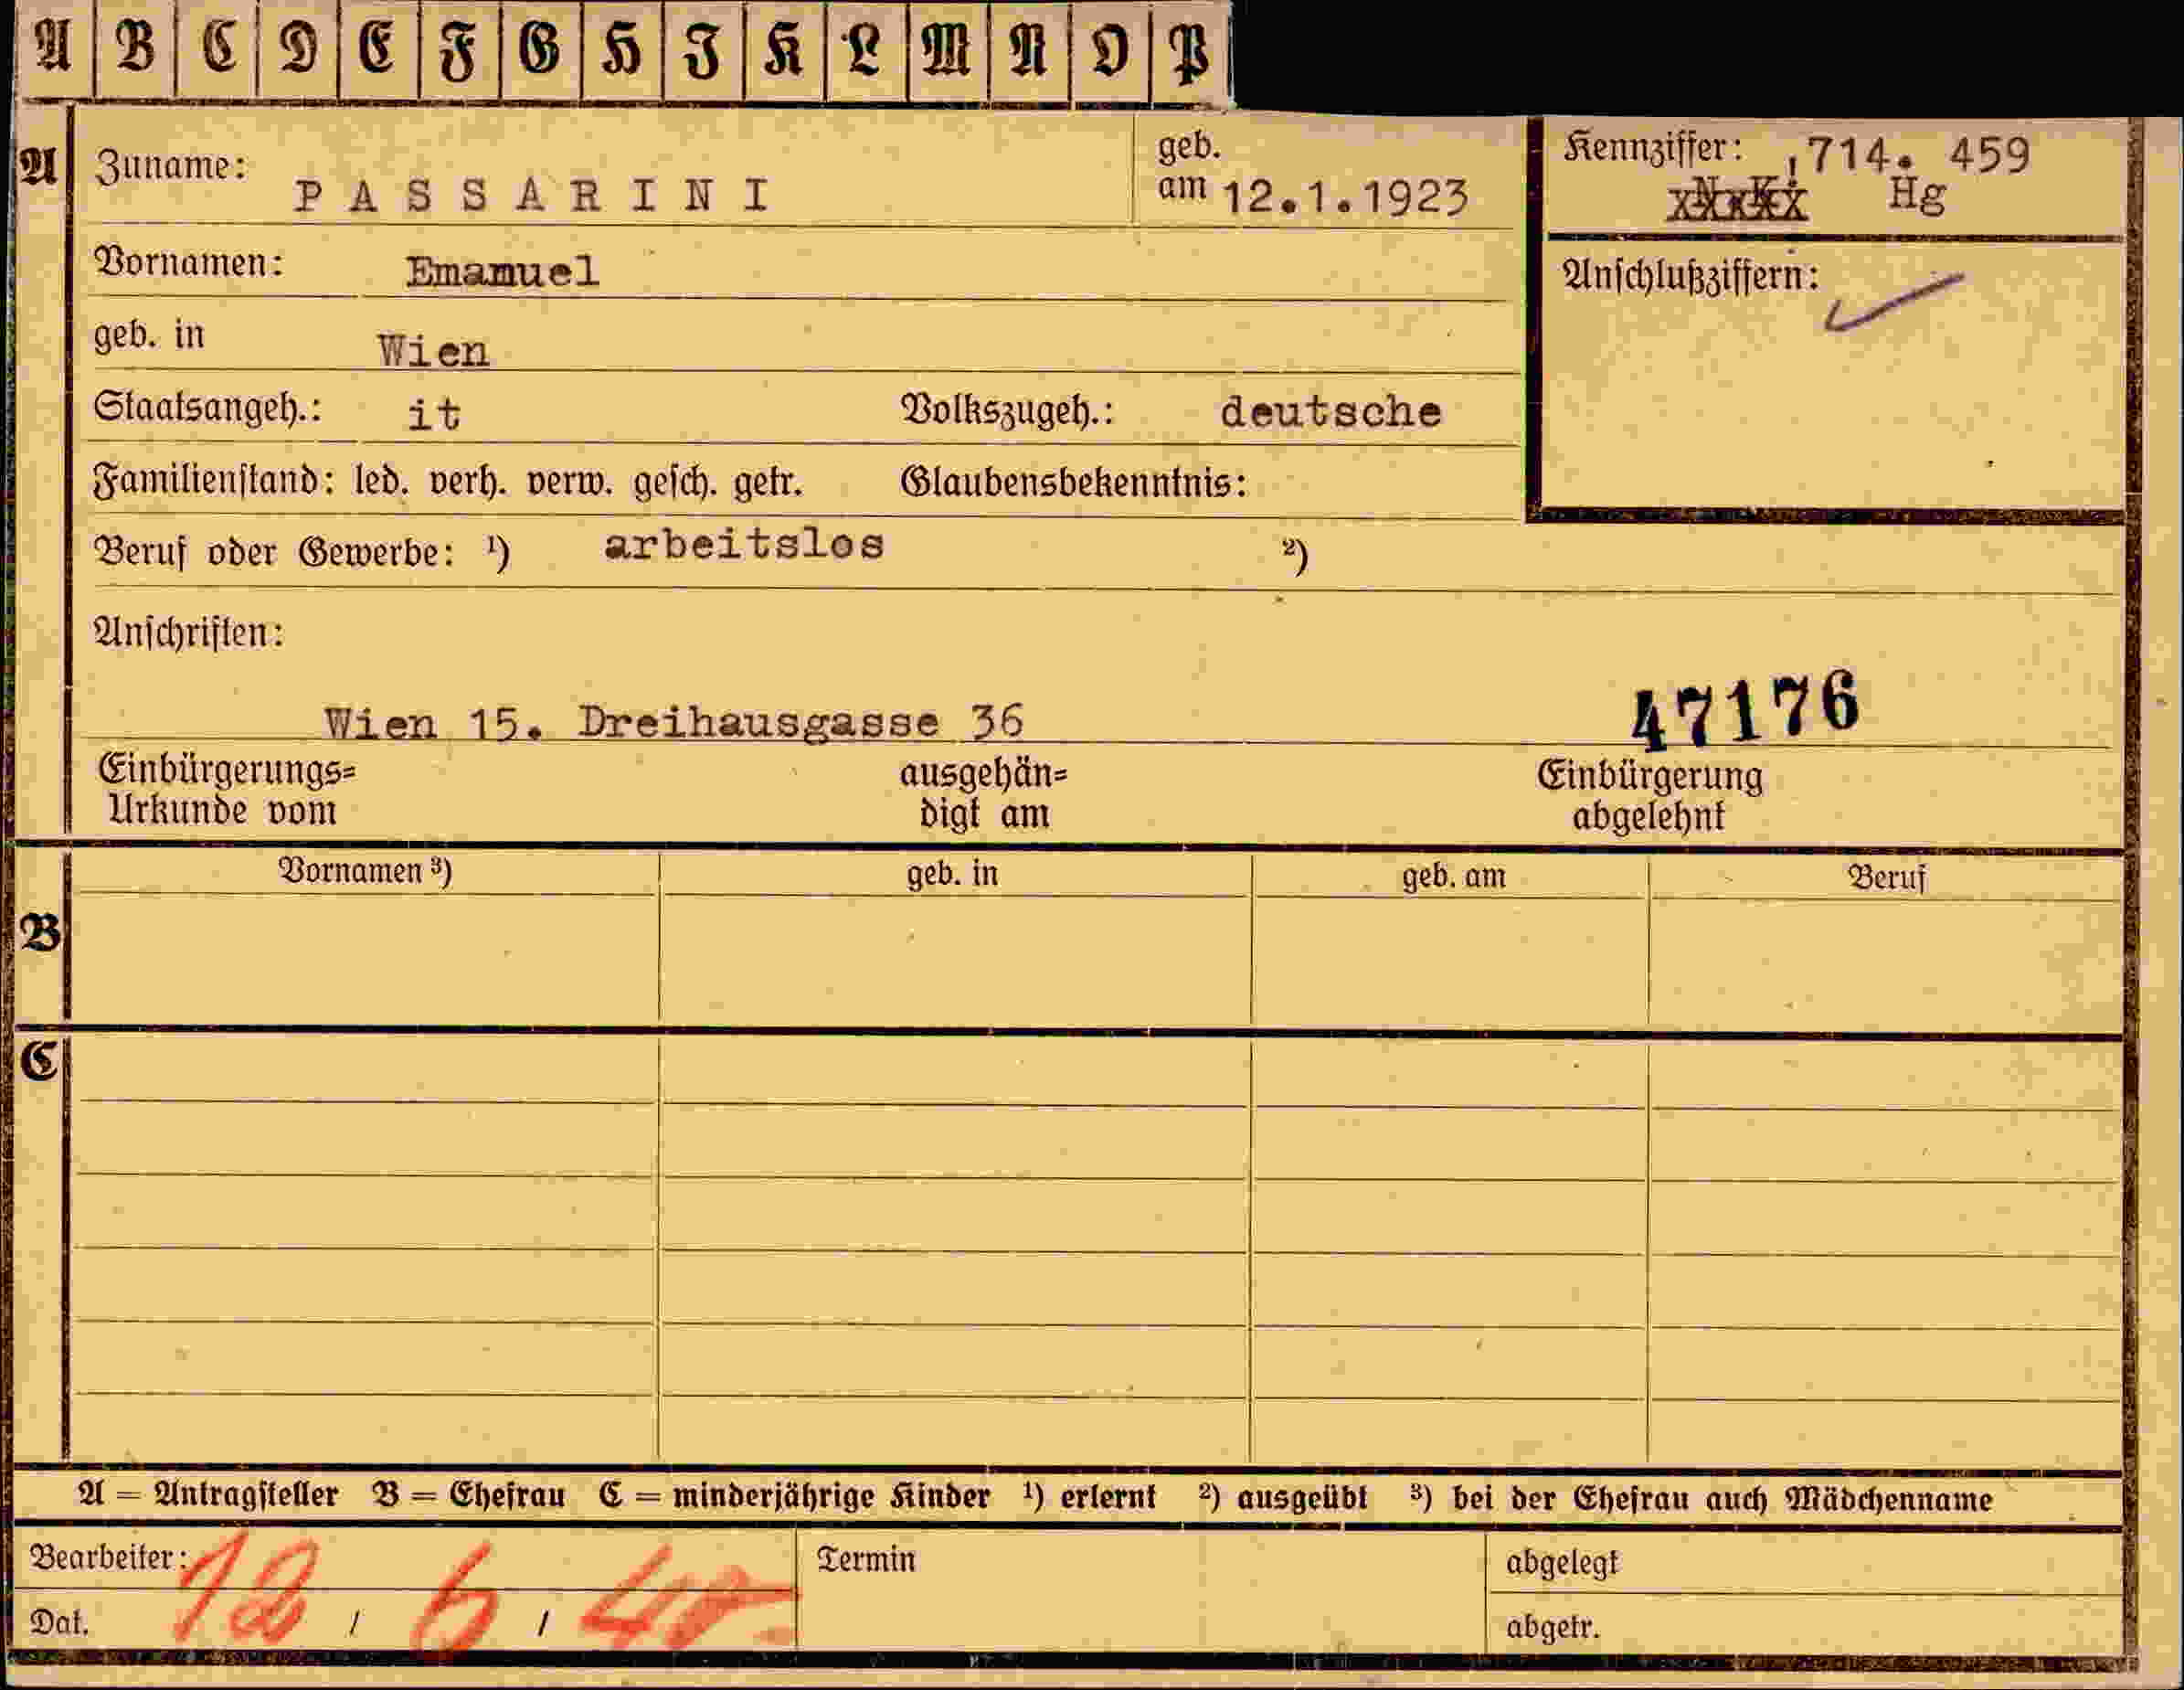 A B C D E F G H J K L M N O P
A Zuname: PASSARINI geb. am 12.1.1923 Kennziffer: 714. 459
Hg
Vornamen: Emamuel Anschlußziffern:
geb. in Wien
Staatsangeh.: it Volkszugeh.: deutsche
Familienstand: led. verh. verw. gesch. getr. Glaubensbekenntnis:
Beruf oder Gewerbe: ¹) arbeitslos ²)
Anschriften:
Wien 15. Dreihausgasse 36 47176
Einbürgerungs= ausgehän= Einbürgerung
Urkunde vom digt am abgelehnt
Vornamen ³) geb. in geb. am Beruf
B
C
A = Antragsteller B = Ehefrau C = minderjährige Kinder ¹) erlernt ²) ausgeübt ³) bei der Ehefrau auch Mädchenname
Bearbeiter: Termin abgelegt
Dat. 12 / 6 / 40 abgetr.